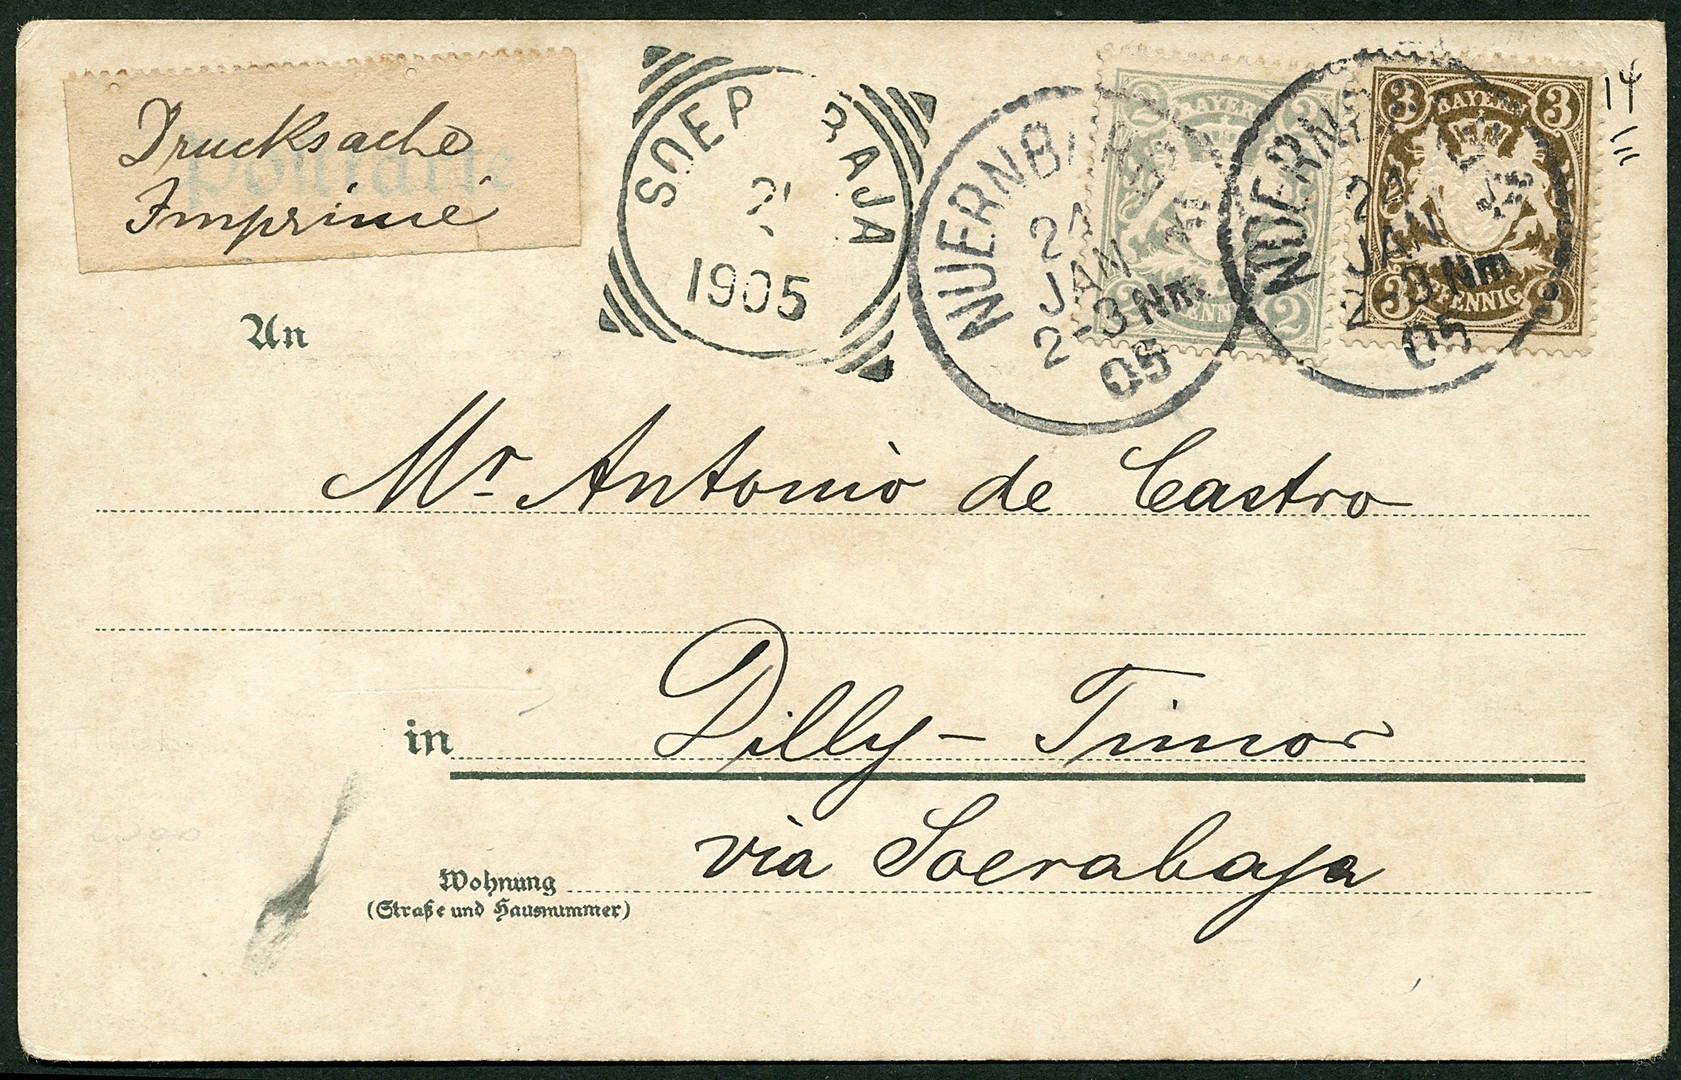 Drucksache
Imprimé
Postkarte
SOER RAJA
21
1905
NUERNBERG
24
JAN
2-3 Nm
05
BAYERN
2 2
2 2
PFENNIG
NUERNBERG
24
JAN
2-3 Nm
05
BAYERN
3 3
3 3
PFENNIG
14
An
Mr. Antonio de Castro
in Dilly - Timor
via Soerabaja
Wohnung
(Straße und Hausnummer)